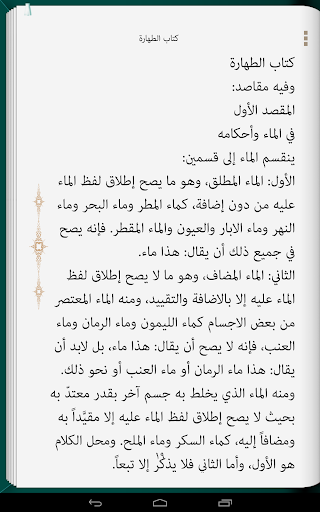 كتاب الطهارة
كتاب الطهارة
وفيه مقاصد:
المقصد الأول
في الماء وأحكامه
ينقسم الماء إلى قسمين:
الأول: الماء المطلق، وهو ما يصح إطلاق لفظ الماء
عليه من دون إضافة، كماء المطر وماء البحر وماء
النهر وماء الابار والعيون والماء المقطر. فإنه يصح
في جميع ذلك أن يقال: هذا ماء.
الثاني: الماء المضاف، وهو ما لا يصح إطلاق لفظ
الماء عليه إلا بالاضافة والتقييد، ومنه الماء المعتصر
من بعض الاجسام كماء الليمون وماء الرمان وماء
العنب، فإنه لا يصح أن يقال: هذا ماء، بل لابد أن
يقال: هذا ماء الرمان أو ماء العنب أو نحو ذلك.
ومنه الماء الذي يخلط به جسم آخر بقدر معتدّ به
بحيث لا يصح إطلاق لفظ الماء عليه إلا مقيَّداً به
ومضافاً إليه، كماء السكر وماء الملح. ومحل الكلام
هو الأول، وأما الثاني فلا يذكُرْ إلا تبعاً.